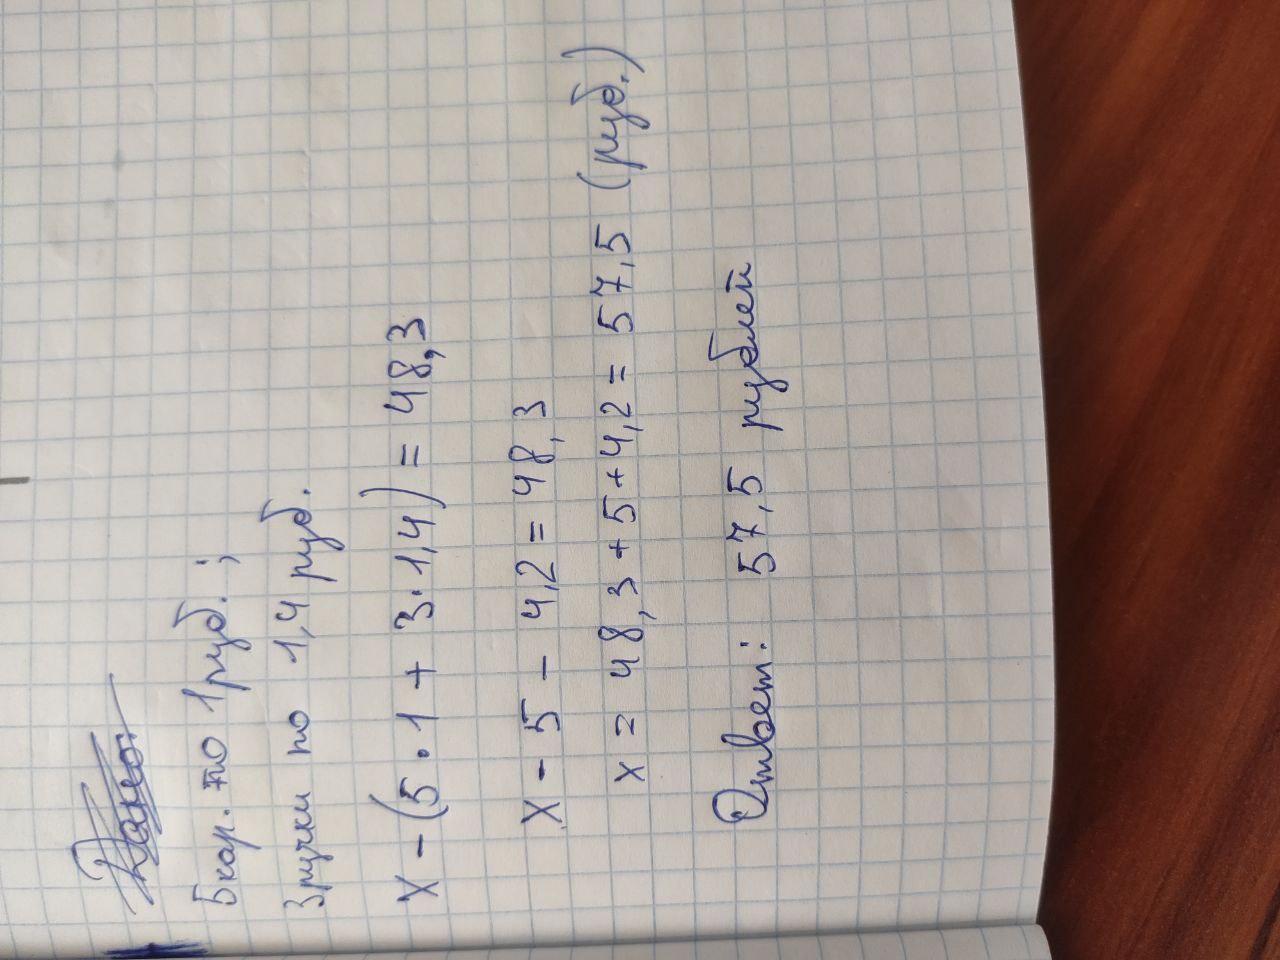 Дано:
5 кар. по 1 руб.;
3 ручки по 1,4 руб.
х - (5 · 1 + 3 · 1,4) = 48,3
х - 5 - 4,2 = 48,3
х = 48,3 + 5 + 4,2 = 57,5 (руб.)
Ответ: 57,5 рублей